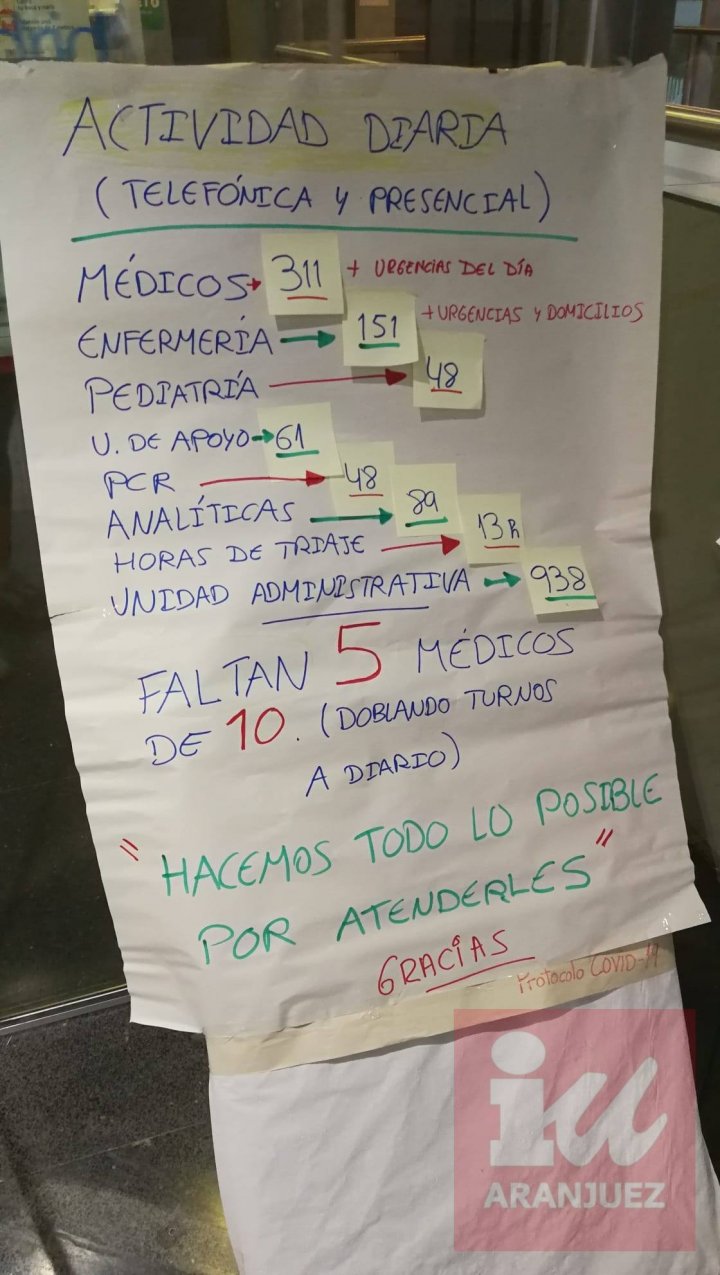 ACTIVIDAD DIARIA
(TELEFÓNICA Y PRESENCIAL)
MÉDICOS → 311 + URGENCIAS DEL DÍA
ENFERMERÍA → 151 + URGENCIAS Y DOMICILIOS
PEDIATRÍA → 48
U. DE APOYO → 61
PCR → 48
ANALÍTICAS → 89
HORAS DE TRIAJE → 13 h
UNIDAD ADMINISTRATIVA → 938
FALTAN 5 MÉDICOS
DE 10. (DOBLANDO TURNOS
A DIARIO)
"HACEMOS TODO LO POSIBLE
POR ATENDERLES"
GRACIAS
Protocolo COVID-19
iu
ARANJUEZ